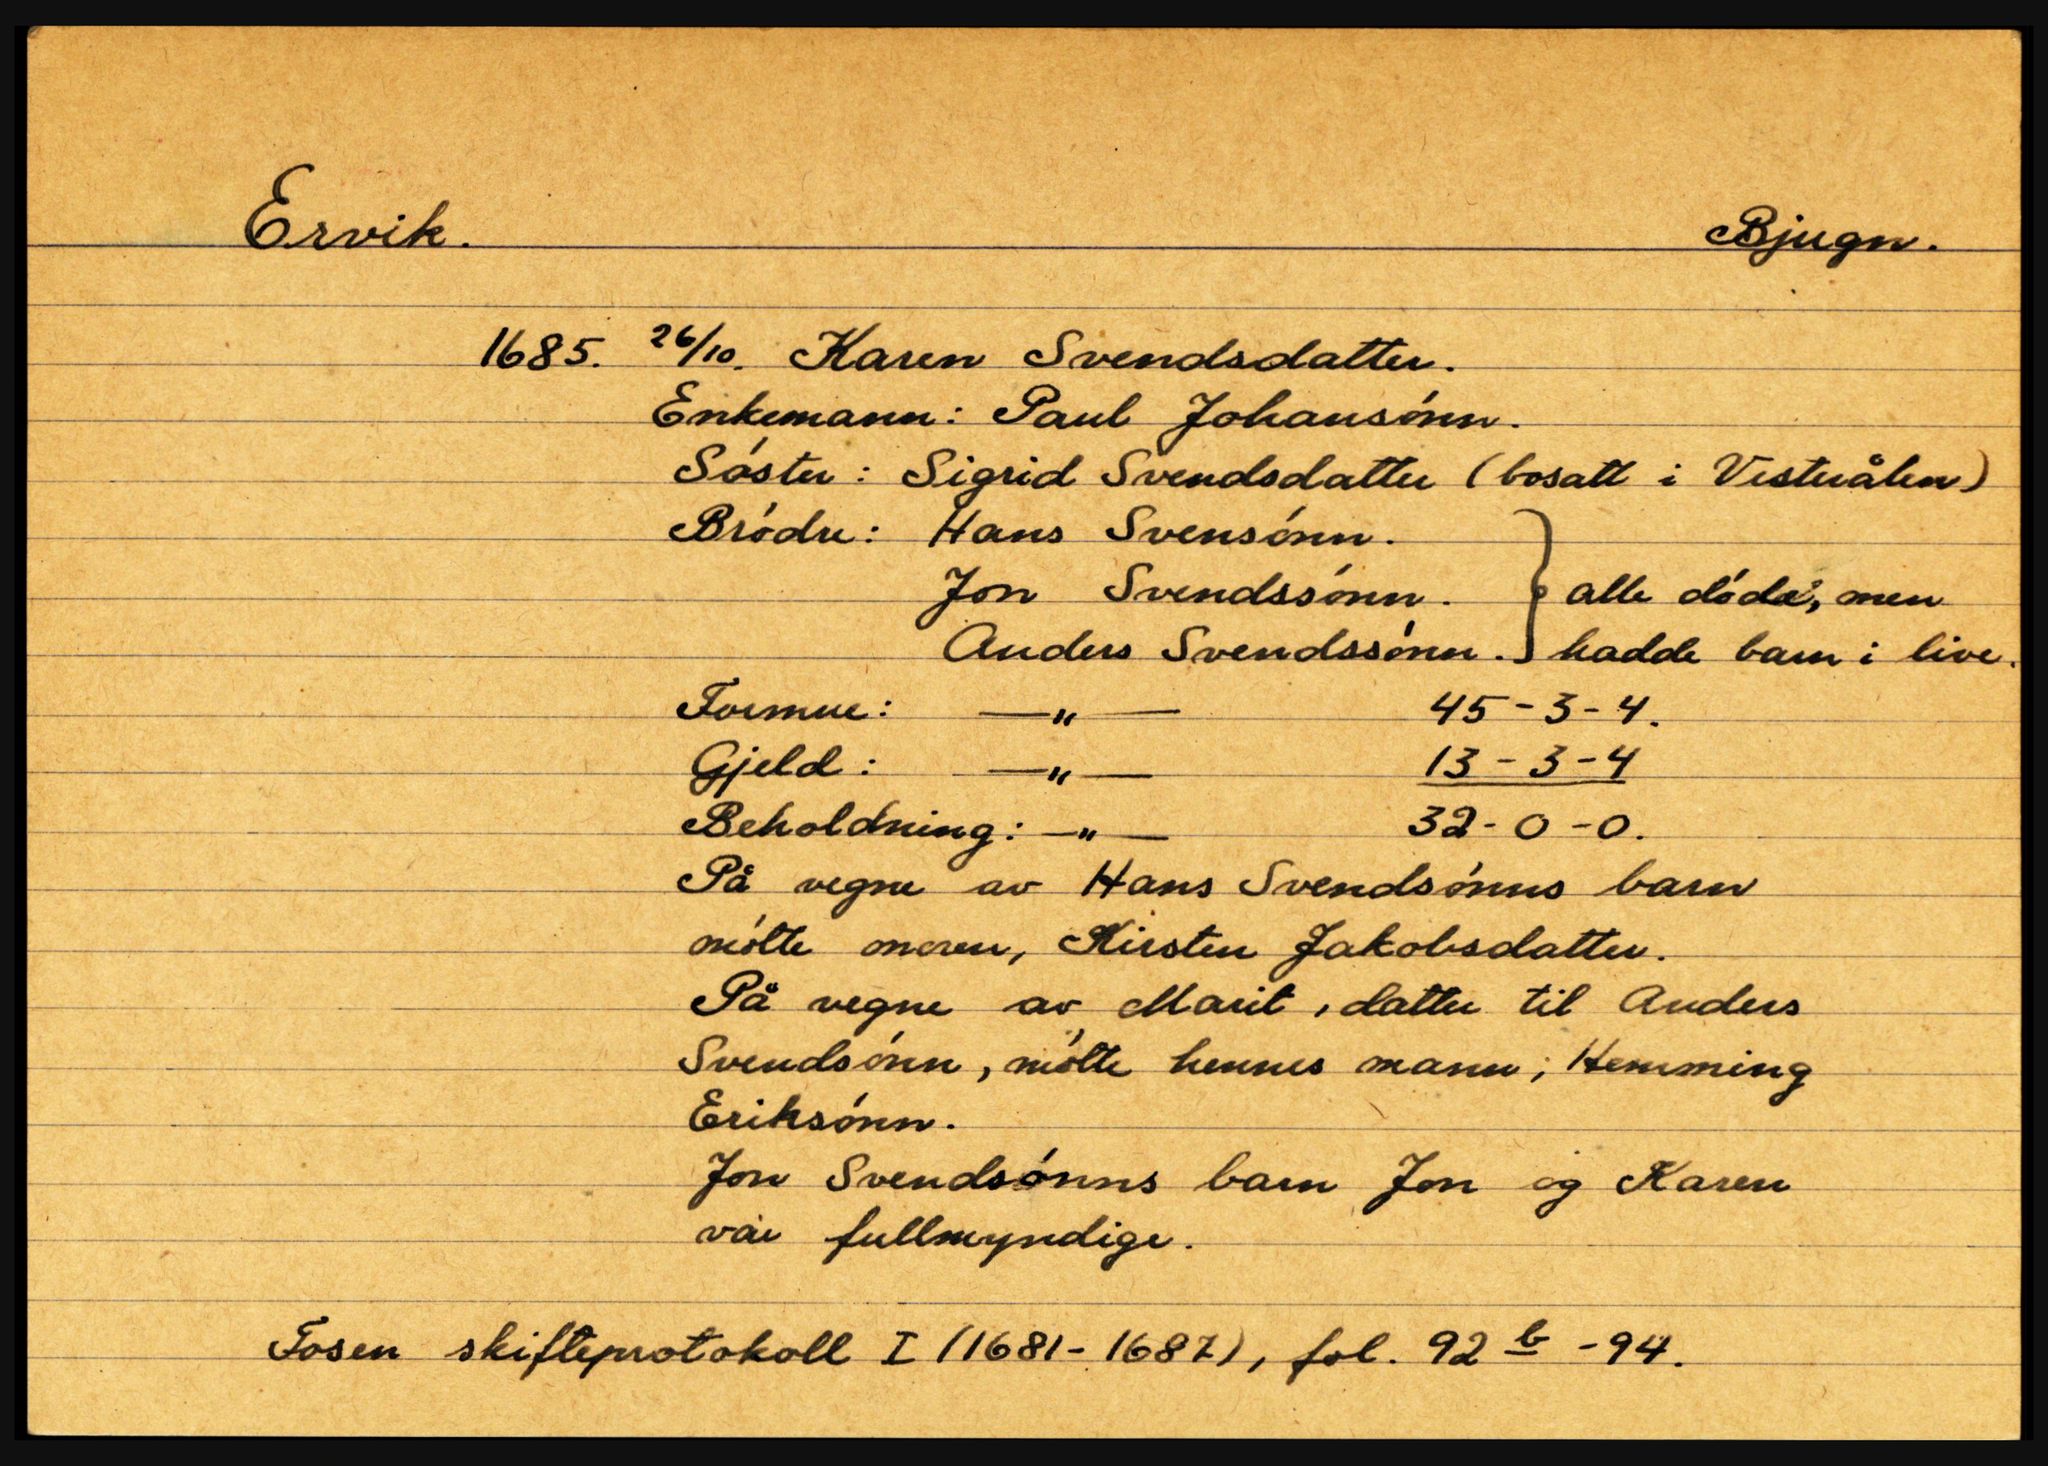 Ervik. Bjugn.
1685. 26/10. Karen Svendsdatter.
Enkemann: Paul Johansónn.
Sóster: Sigrid Svendsdatter (bosatt i Vesterålen)
Bródre: Hans Svensónn.
Jon Svendssónn. } alle dóde, men
Anders Svendssónn. } hadde barn i live.
Formue: —"— 45-3-4.
Gjeld: —"— 13-3-4
Beholdning: —"— 32-0-0.
På vegne av Hans Svendsónns barn
mótte moren, Kirsten Jakobsdatter.
På vegne av Marit, datter til Anders
Svendsónn, mótte hennes mann; Hemming
Eriksónn.
Jon Svendsónns barn Jon og Karen
var fullmyndige.
Fosen skifteprotokoll I (1681-1687), fol. 92 b -94.